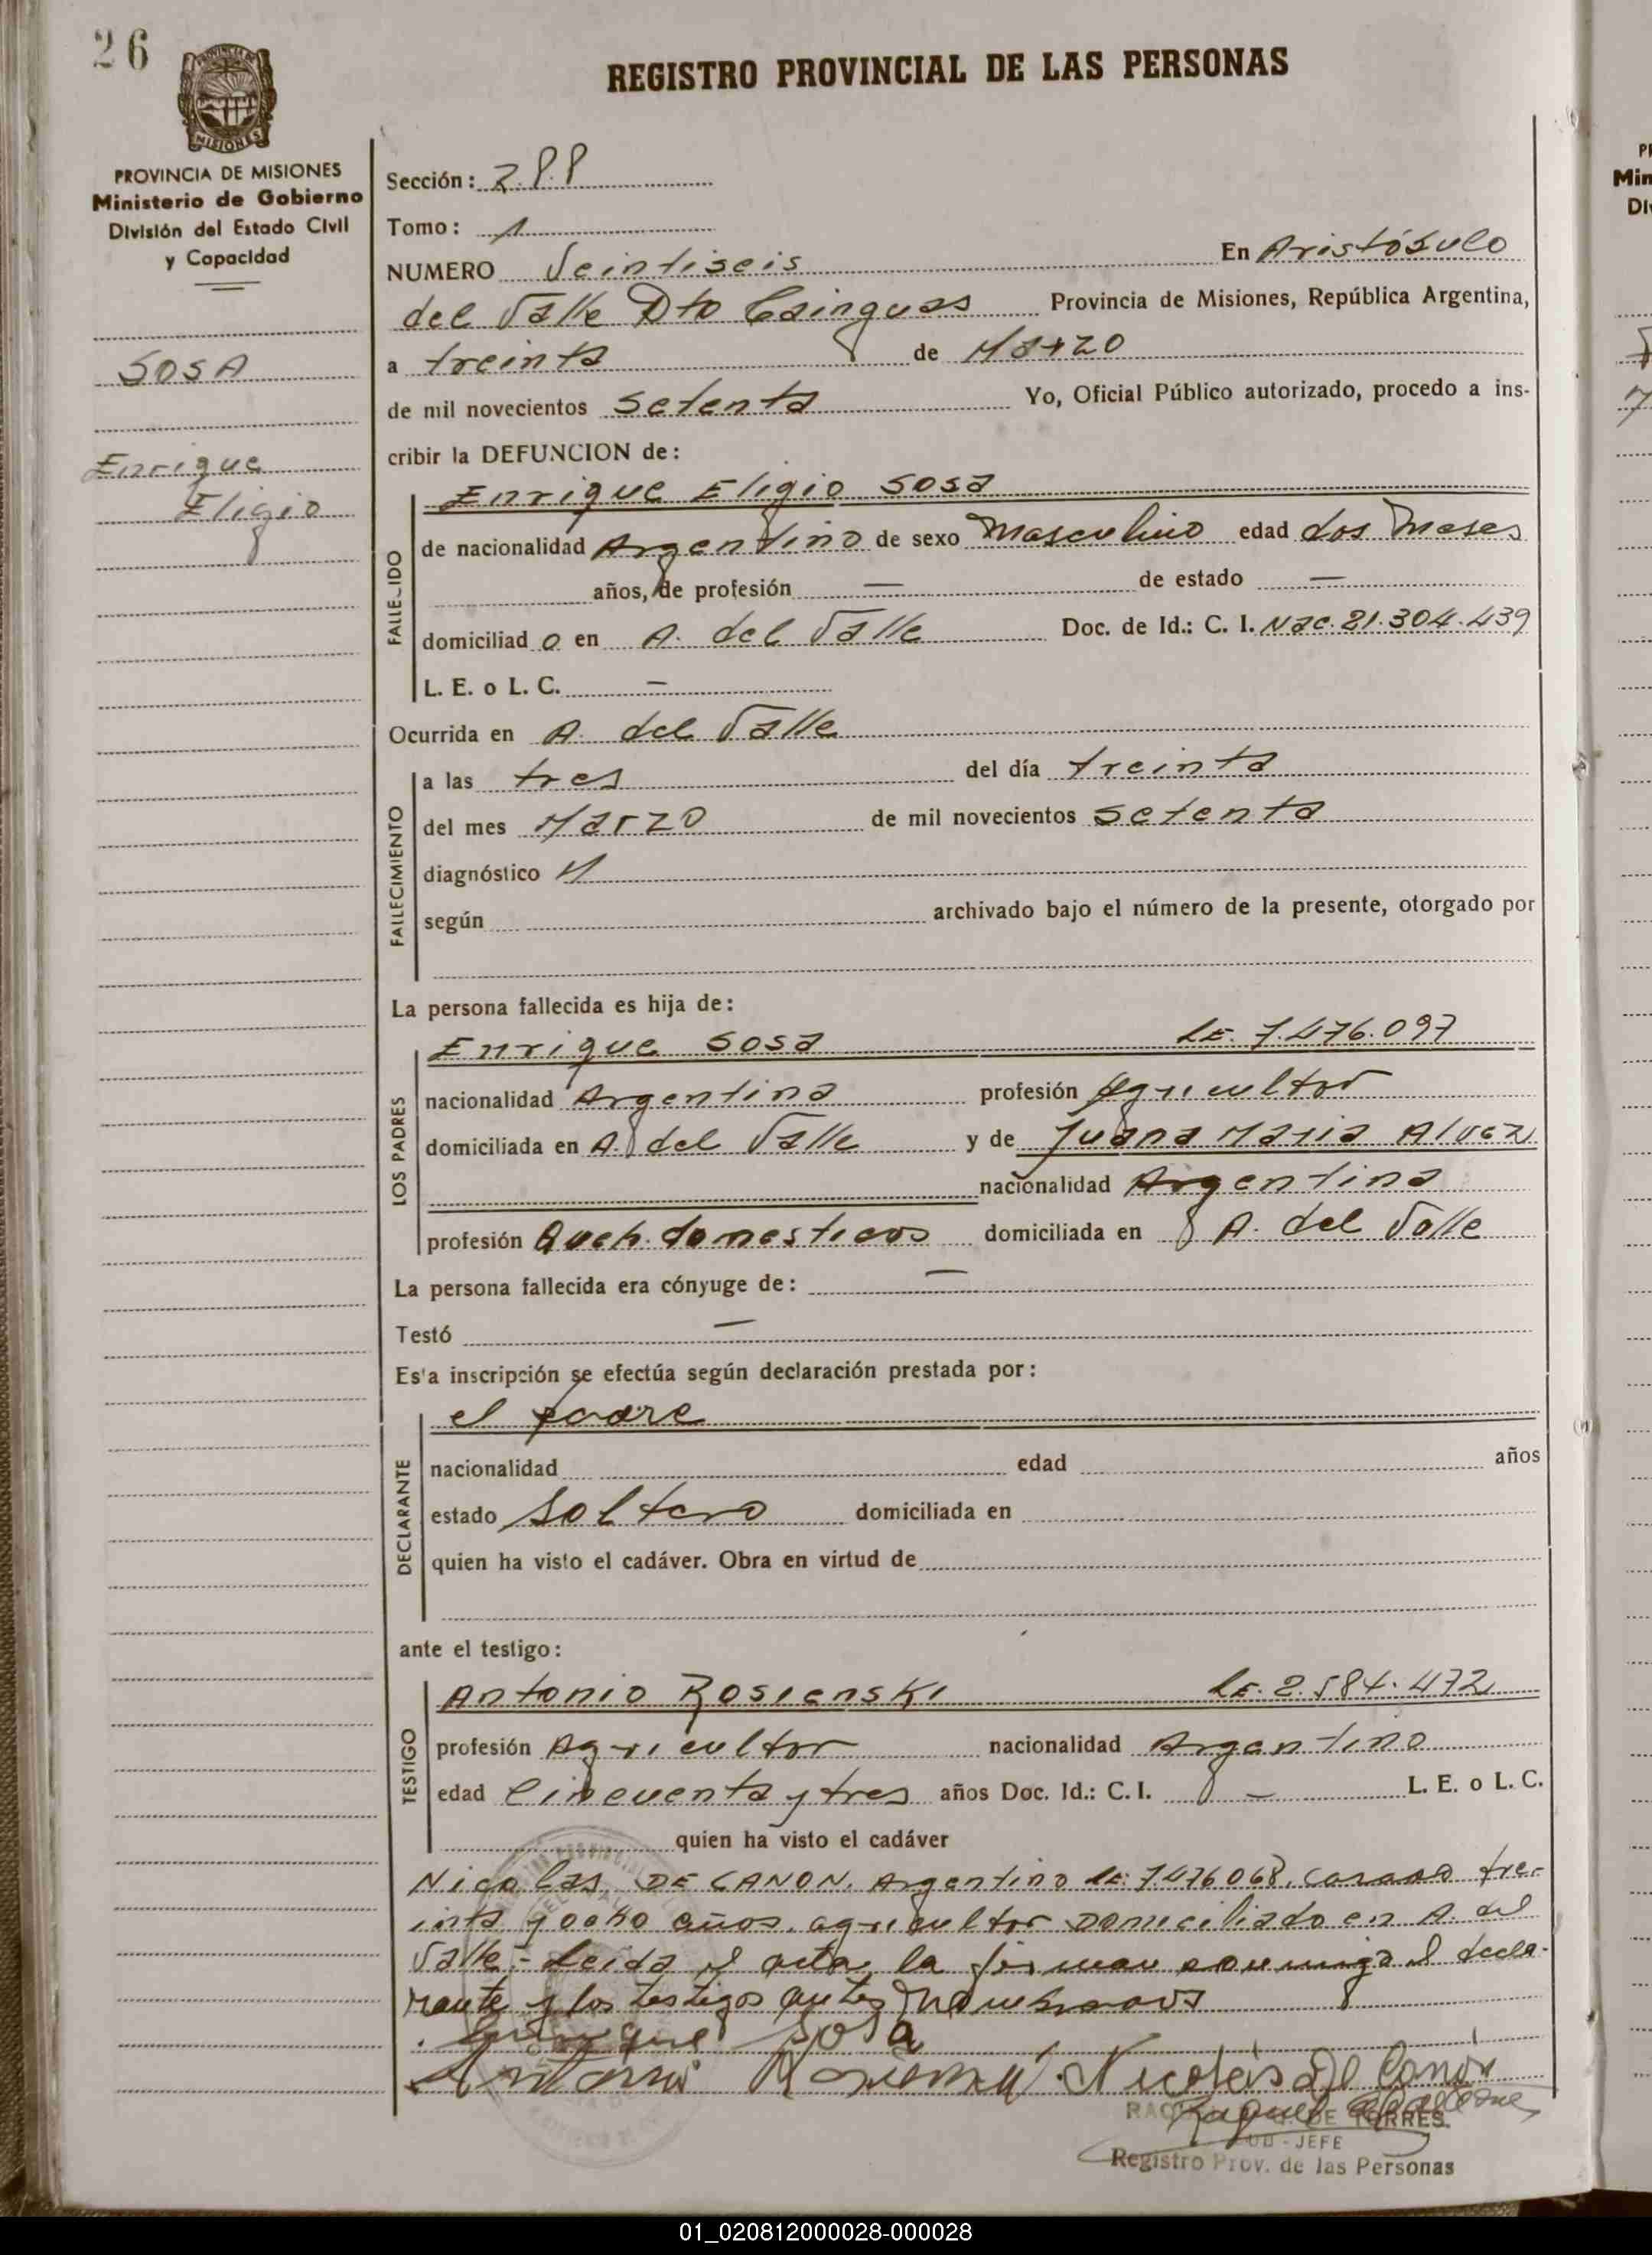 26
PROVINCIA DE
MISIONES
REGISTRO PROVINCIAL DE LAS PERSONAS
PROVINCIA DE MISIONES
Ministerio de Gobierno
División del Estado Civil
y Capacidad
SOSA
Enrique
Eligio
Sección:
Tomo: 1
NUMERO Veintiseis En Aristóbulo
del Valle Dto Cainguas Provincia de Misiones, República Argentina,
a treinta de Marzo
de mil novecientos setenta Yo, Oficial Público autorizado, procedo a ins-
cribir la DEFUNCION de:
FALLECIDO
Enrique Eligio Sosa
de nacionalidad Argentino de sexo Masculino edad dos meses
años, de profesión — de estado —
domiciliad o en A. del Valle Doc. de Id.: C. I. Nac. 21.304.439
L. E. o L. C. —
Ocurrida en A. del Valle
FALLECIMIENTO
a las tres del día treinta
del mes Marzo de mil novecientos setenta
diagnóstico
según archivado bajo el número de la presente, otorgado por
La persona fallecida es hija de:
LOS PADRES
Enrique Sosa LE. 7.476.097
nacionalidad Argentina profesión Agricultor
domiciliada en A. del Valle y de Juana Maria
nacionalidad Argentina
profesión Queh. domesticos domiciliada en A. del Valle
La persona fallecida era cónyuge de: —
Testó —
Esta inscripción se efectúa según declaración prestada por:
DECLARANTE
el padre
nacionalidad edad años
estado Soltero domiciliada en
quien ha visto el cadáver. Obra en virtud de
ante el testigo:
TESTIGO
Antonio Rosienski LE. 2.584.472
profesión Agricultor nacionalidad Argentino
edad Cincuenta y tres años Doc. Id.: C. I. — L. E. o L. C.
quien ha visto el cadáver
Nicolas, DE CANON, Argentino LE: 7.476068, casado trei-
inta y ocho años, agricultor Domiciliado en A. del
Valle.- Leida el acta, la firman conmigo el decla-
rante y los testigos antes
Enrique Sosa
Antonio Nicolás De Canon
Raquel
DE TORRES
SUB - JEFE
Registro Prov. de las Personas
01_020812000028-000028